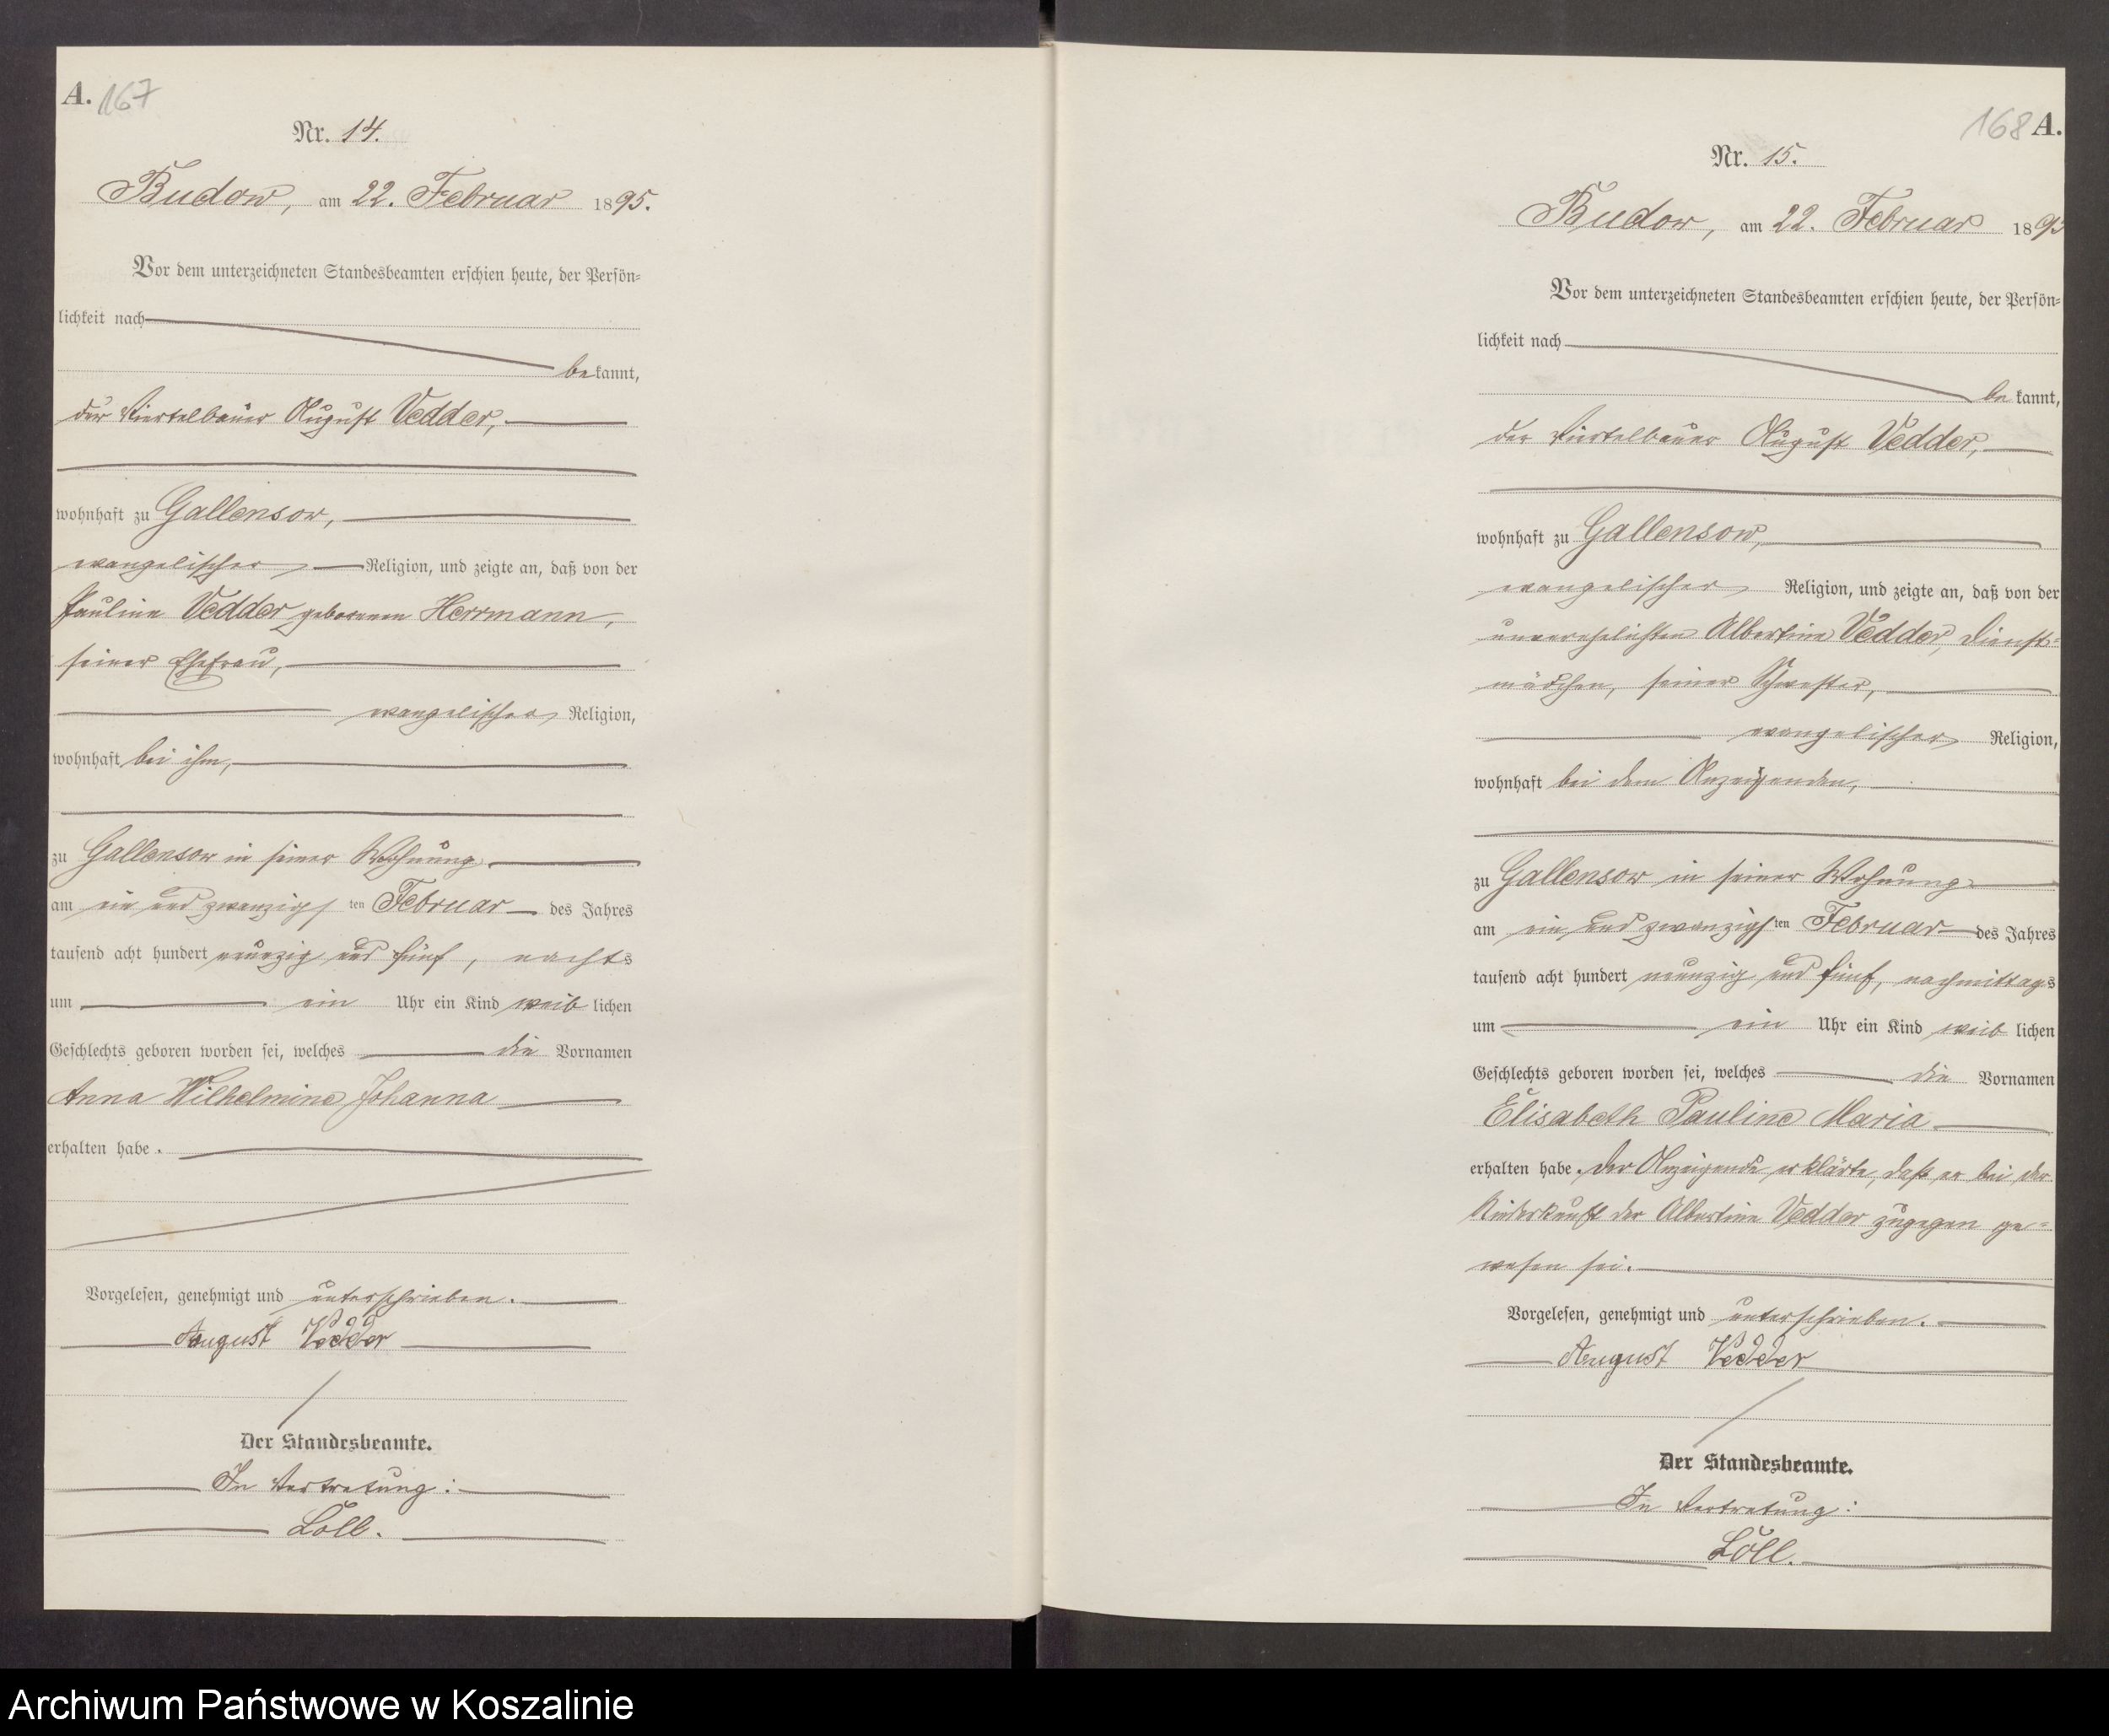 A. 167
Nr. 14.
Budow, am 22. Februar 1895.
Vor dem unterzeichneten Standesbeamten erschien heute, der Persön=
lichkeit nach
bekannt,
der Viertelbauer August Vedder,
wohnhaft zu Gallensow,
evangelischer Religion, und zeigte an, daß von der
Pauline Vedder geborenen Herrmann,
seiner Ehefrau,
evangelischer Religion,
wohnhaft bei ihm,
zu Gallensow in seiner Wohnung
am ein und zwanzigsten Februar des Jahres
tausend acht hundert neunzig und fünf, nachts
um ein Uhr ein Kind weiblichen
Geschlechts geboren worden sei, welches die Vornamen
Anna Wilhelmine Johanna
erhalten habe.
Vorgelesen, genehmigt und unterschrieben.
August Vedder
Der Standesbeamte.
In Vertretung:
Löll.
168 A.
Nr. 15.
Budow, am 22. Februar 1895
Vor dem unterzeichneten Standesbeamten erschien heute, der Persön=
lichkeit nach
bekannt,
der Viertelbauer August Vedder,
wohnhaft zu Gallensow,
evangelischer Religion, und zeigte an, daß von der
unverehelichten Albertine Vedder, Dienst=
mädchen, seiner Schwester,
evangelischer Religion,
wohnhaft bei dem Anzeigenden,
zu Gallensow in seiner Wohnung
am ein und zwanzigsten Februar des Jahres
tausend acht hundert neunzig und fünf, nachmittags
um ein Uhr ein Kind weiblichen
Geschlechts geboren worden sei, welches die Vornamen
Elisabeth Pauline Maria
erhalten habe. Der Anzeigende erklärte, daß er bei der
Niederkunft der Albertine Vedder zugegen ge=
wesen sei.
Vorgelesen, genehmigt und unterschrieben.
August Vedder
Der Standesbeamte.
In Vertretung:
Löll.
Archiwum Państwowe w Koszalinie